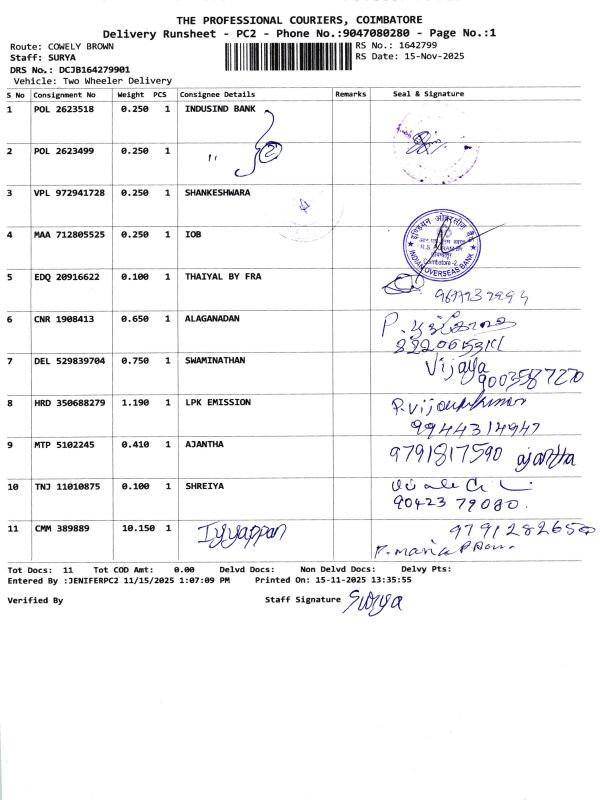 THE PROFESSIONAL COURIERS, COIMBATORE
Delivery Runsheet - PC2 - Phone No.:9047080280 - Page No.:1
Route: COWELY BROWN RS No.: 1642799
Staff: SURYA RS Date: 15-Nov-2025
DRS No.: DCJB164279901
Vehicle: Two Wheeler Delivery
S No Consignment No Weight PCS Consignee Details Remarks Seal & Signature
1 POL 2623518 0.250 1 INDUSIND BANK
2 POL 2623499 0.250 1 " 2
3 VPL 972941728 0.250 1 SHANKESHWARA
4 MAA 712805525 0.250 1 IOB
INDIAN OVERSEAS BANK
Coimbatore-2
5 EDQ 20916622 0.100 1 THAIYAL BY FRA
6 CNR 1908413 0.650 1 ALAGANADAN
7 DEL 529839704 0.750 1 SWAMINATHAN Vijaya
9003587270
8 HRD 350688279 1.190 1 LPK EMISSION P.vijayakumar
9944314947
9 MTP 5102245 0.410 1 AJANTHA 9791817590 ajantha
10 TNJ 11010875 0.100 1 SHREIYA
90423 79080.
11 CMM 389889 10.150 1 Iyyappan 9791282650
Tot Docs: 11 Tot COD Amt: 0.00 Delvd Docs: Non Delvd Docs: Delvy Pts:
Entered By :JENIFERPC2 11/15/2025 1:07:09 PM Printed On: 15-11-2025 13:35:55
Verified By Staff Signature Surya